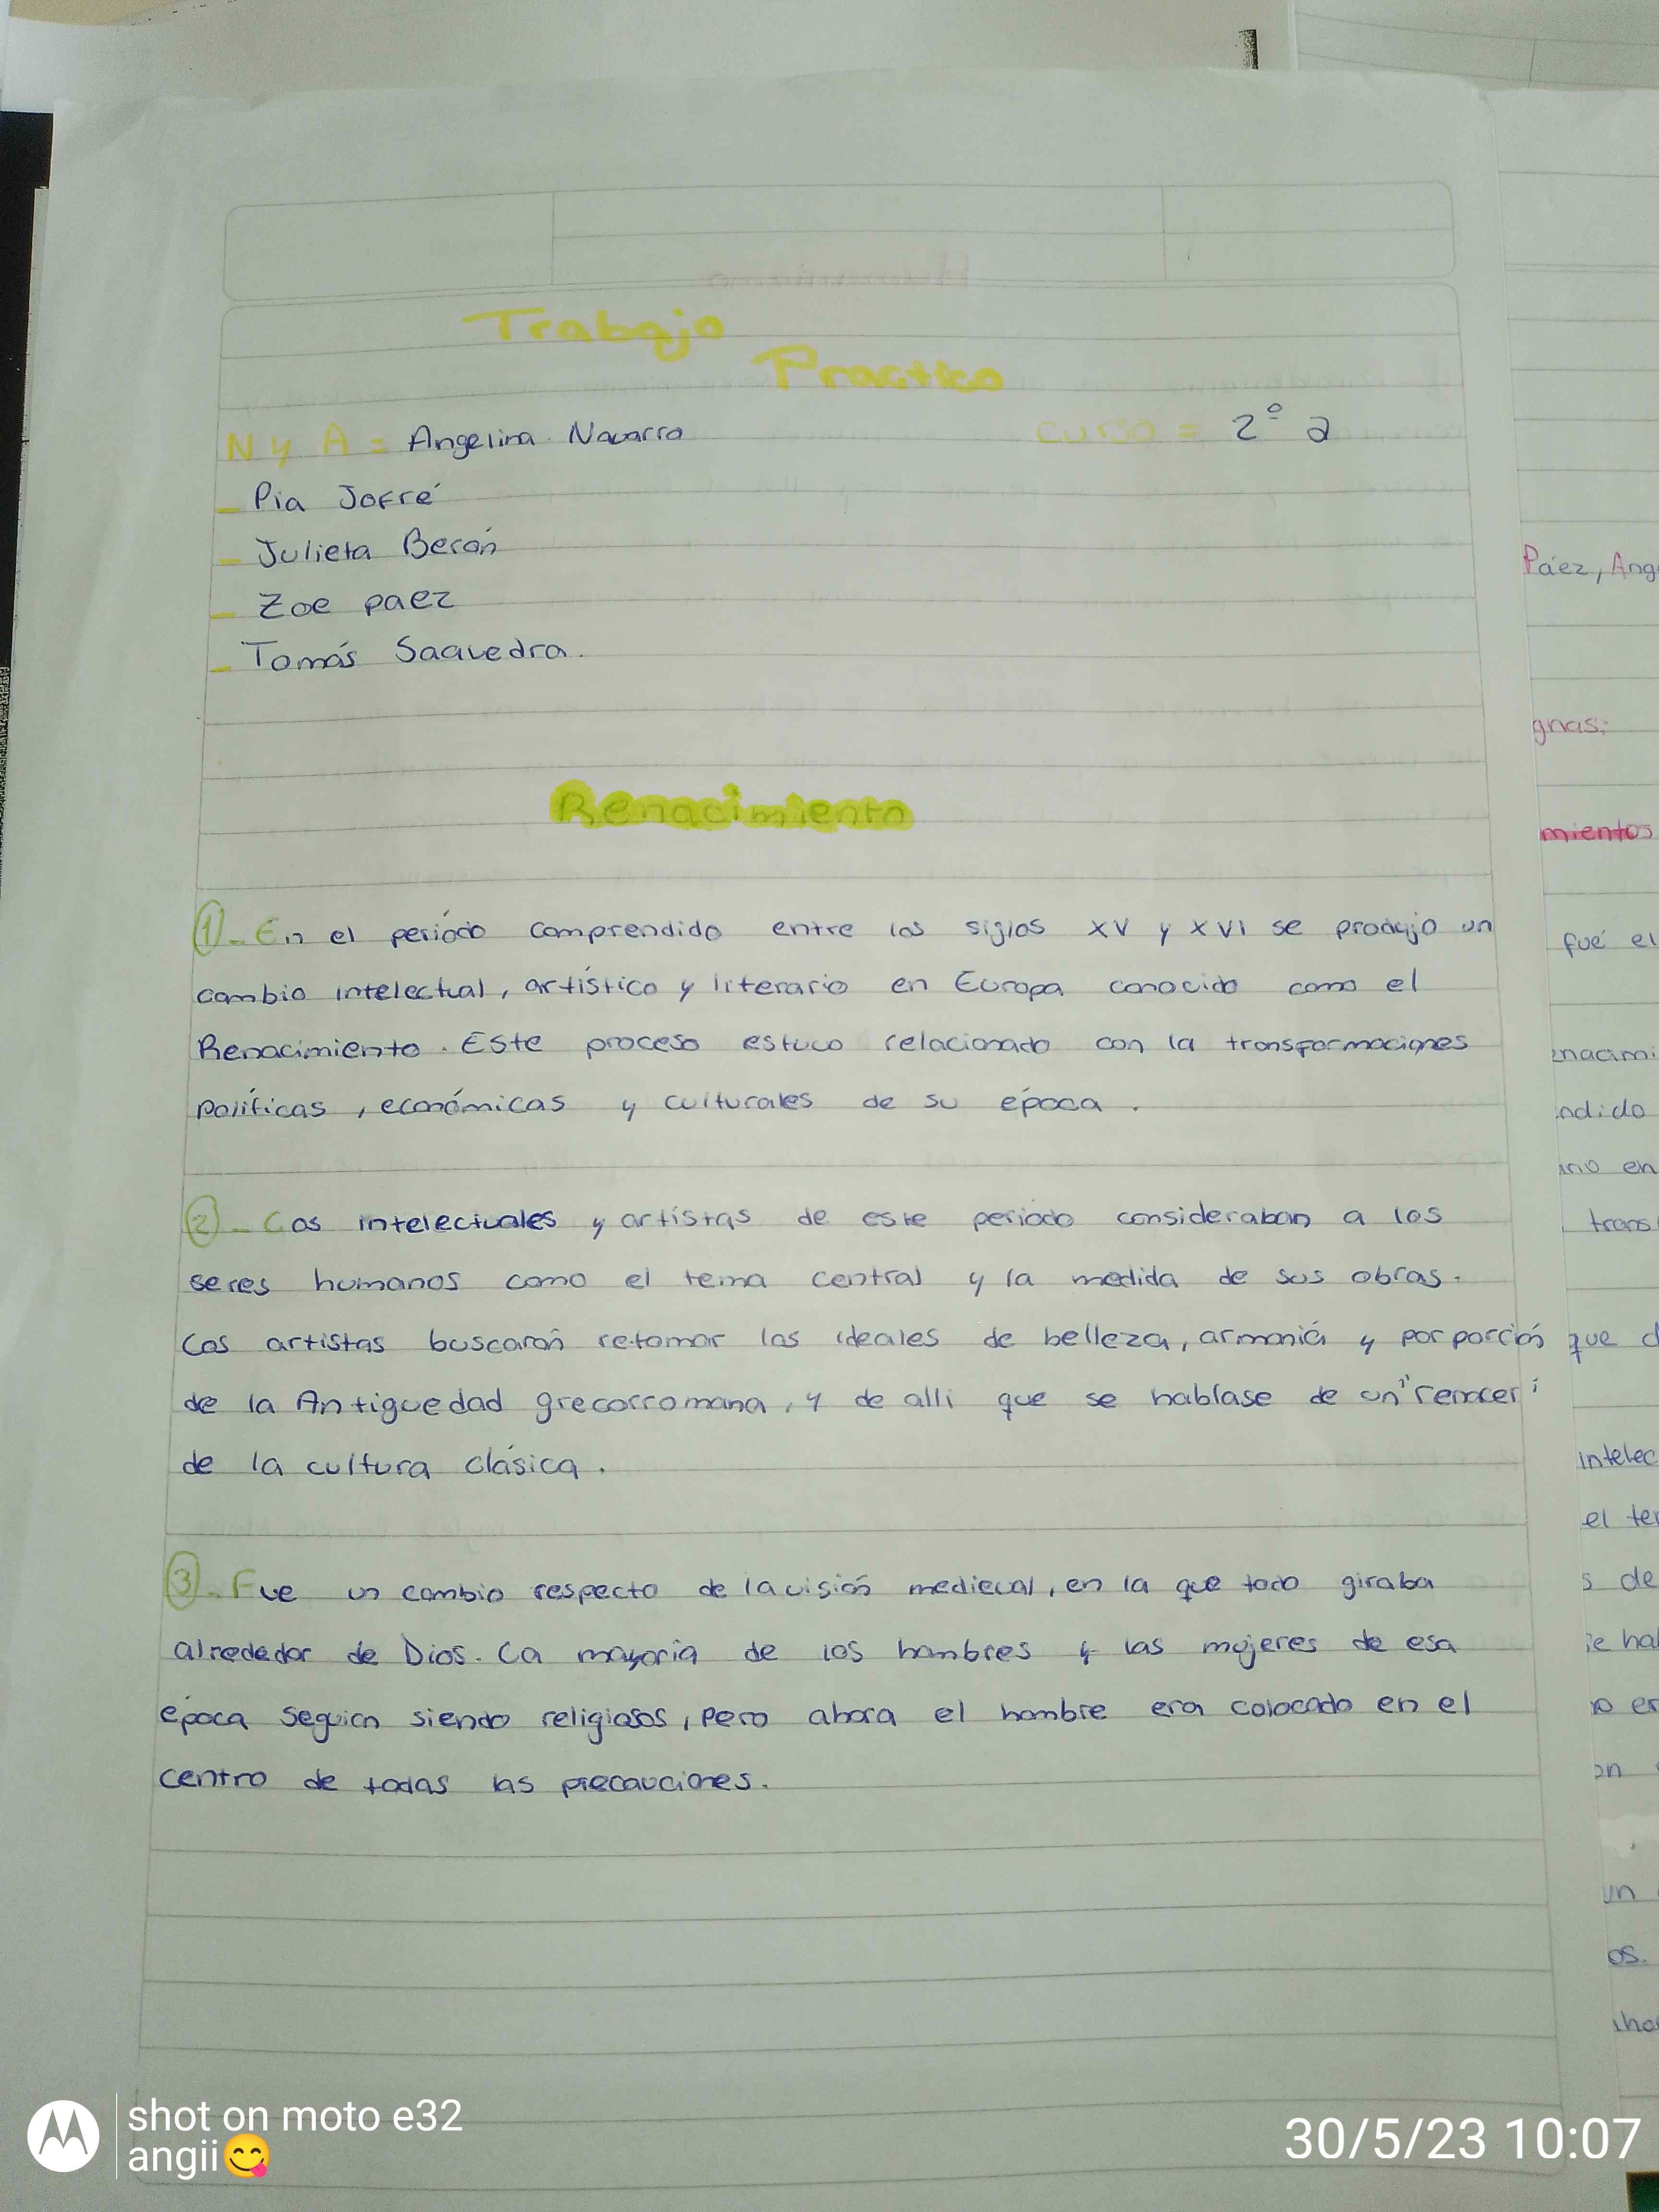 Trabajo
Practico
N y A = Angelina Navarro
curso = 2º a
- Pia Jofré
- Julieta Berón
- Zoe paez
- Tomás Saavedra.
Renacimiento
1- En el período comprendido entre los siglos XV y XVI se produjo un
cambio intelectual, artístico y literario en Europa conocido como el
Renacimiento. Este proceso estuvo relacionado con la transformaciones
políticas, económicas y culturales de su época.
2- Los intelectuales y artístas de este periodo consideraban a los
seres humanos como el tema central y la medida de sus obras.
Los artistas buscarón retomar los ideales de belleza, armonía y porporción
de la Antiguedad grecorromana, y de alli que se hablase de un "renacer"
de la cultura clásica.
3- Fue un cambio respecto de la visión medieval, en la que todo giraba
alrededor de Dios. La mayoría de los hombres y las mujeres de esa
época seguian siendo religiosos, pero ahora el hombre era colocado en el
centro de todas las precauciones.
Páez, Ang
gnas:
mientos
fué el
enacimi
ndido
ario en
trans
que d
intelec
el ter
s de
se ha
no er
on
un
os.
aho
shot on moto e32
angii😋
30/5/23 10:07